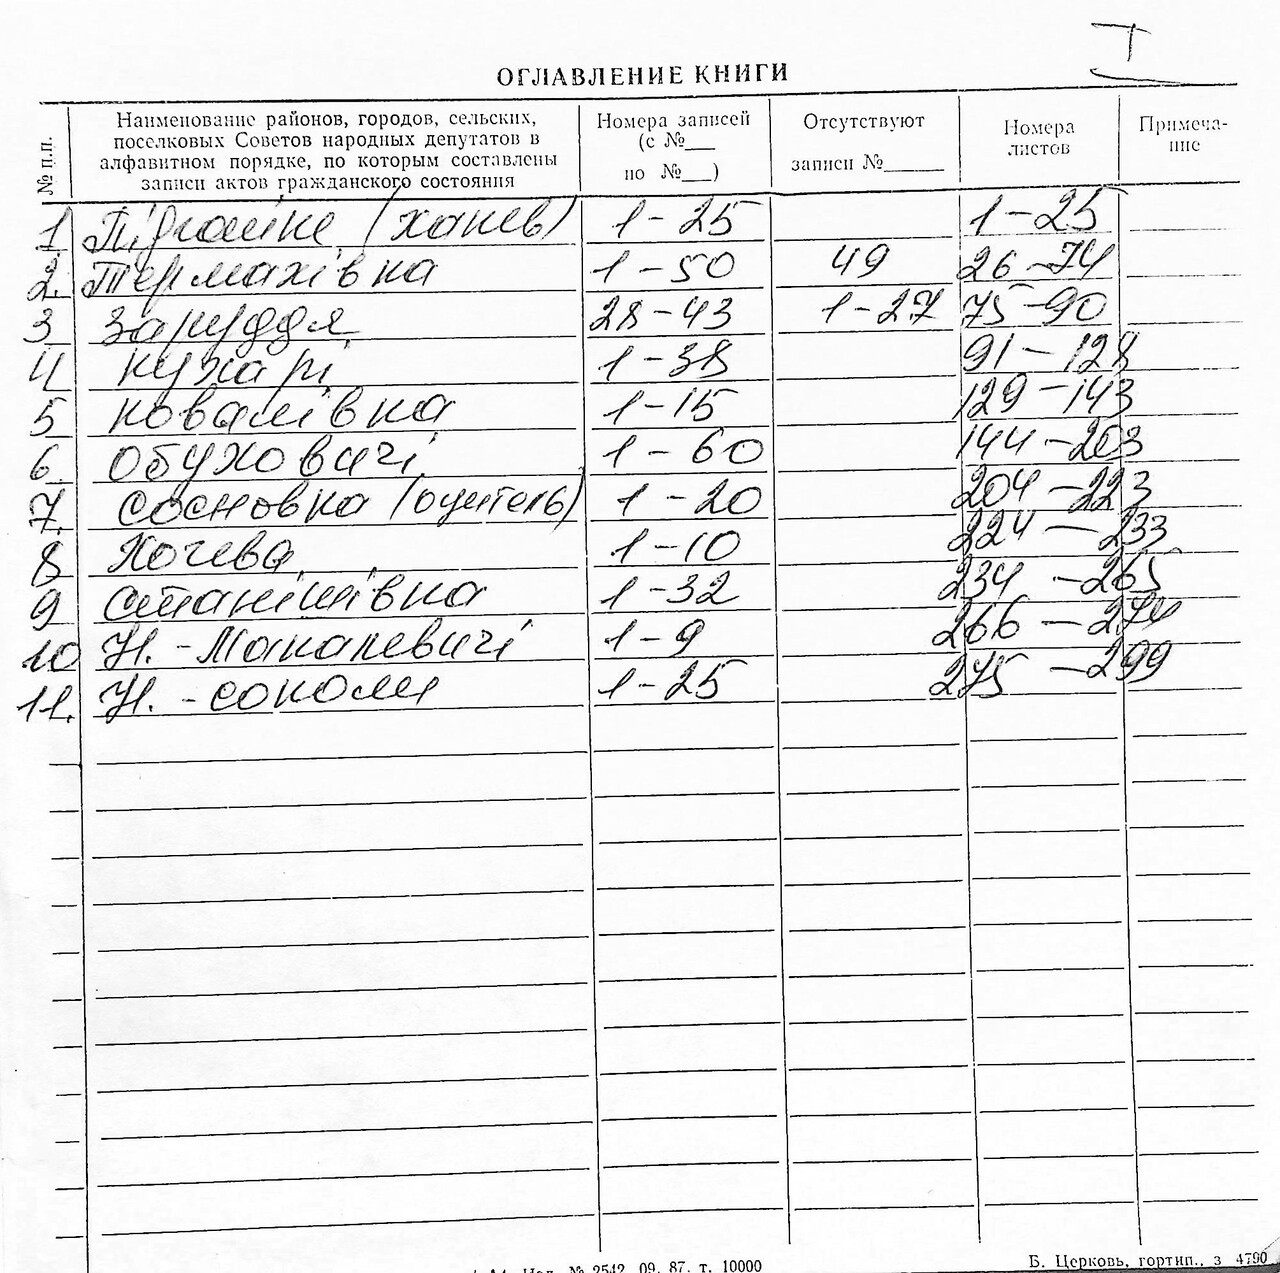 ОГЛАВЛЕНИЕ КНИГИ
№ п.п.
Наименование районов, городов, сельских,
поселковых Советов народных депутатов в
алфавитном порядке, по которым составлены
записи актов гражданского состояния
Номера записей
(с №__
по №__)
Отсутствуют
записи №_____
Номера
листов
Примеча-
ние
1 Підгайне (ханев) 1-25 1-25
2. Термахівка 1-50 49 26-74
3 Заруддя 28-43 1-27 75-90
4 кухарі 1-38 91-128
5 ковалівка 1-15 129-143
6. Обуховичі 1-60 144-203
7. сосновка (оцитель) 1-20 204-223
8 Хочева 1-10 224-233
9 станішівка 1-32 234-265
10 Н.-Макалевичі 1-9 266-274
11. Н.-соколи 1-25 275-299
№ 2542. 09. 87. т. 10000
Б. Церковь, гортип., з 4790